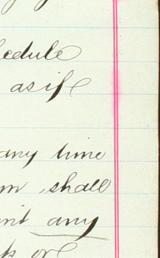 hedule
as if
any time
m shall
int any
k or